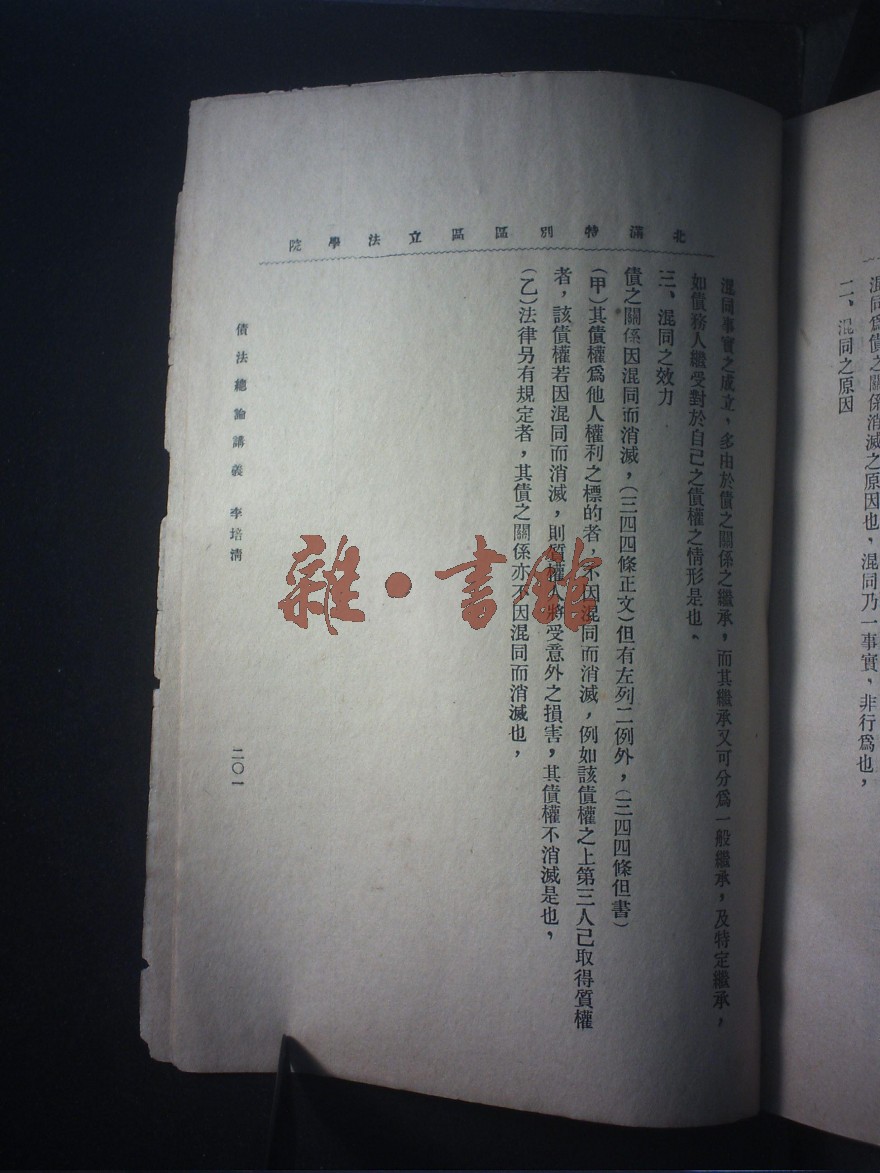 混同爲債之關係消滅之原因也，混同乃一事實、非行爲也，
二、混同之原因
北滿特別區區立法學院
混同事實之成立，多由於債之關係之繼承，而其繼承又可分爲一般繼承，及特定繼承，
如債務人繼受對於自己之債權之情形是也、
三、混同之效力
債之關係因混同而消滅，（三四四條正文）但有左列二例外，（三四四條但書）
（甲）其債權爲他人權利之標的者，不因混同而消滅，例如該債權之上第三人己取得質權
者，該債權若因混同而消滅，則質權人將受意外之損害，其債權不消滅是也，
（乙）法律另有規定者，其債之關係亦不因混同而消滅也，
債法總論講義 李培清
二〇一
雜·書館